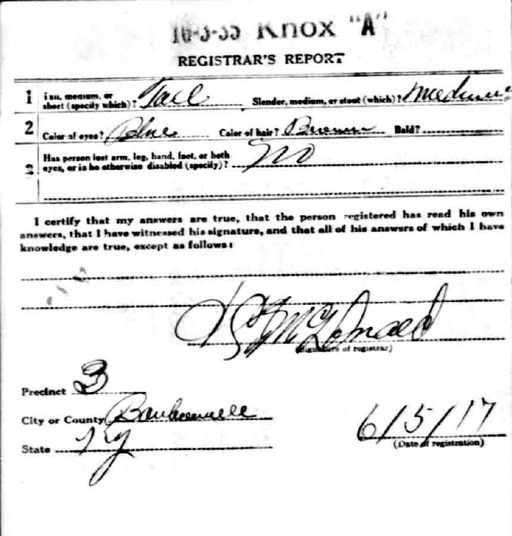 16-3-35 Knox "A"
REGISTRAR'S REPORT
1 Tall, medium, or short (specify which)? Tall Slender, medium, or stout (which)? Medium
2 Color of eyes? Blue Color of hair? Brown Bald?
3 Has person lost arm, leg, hand, foot, or both eyes, or is he otherwise disabled (specify)? No
I certify that my answers are true, that the person registered has read his own
answers, that I have witnessed his signature, and that all of his answers of which I have
knowledge are true, except as follows:
McDonald
(Signature of registrar)
Precinct 3
City or County
State Ky
6/5/17
(Date of registration)